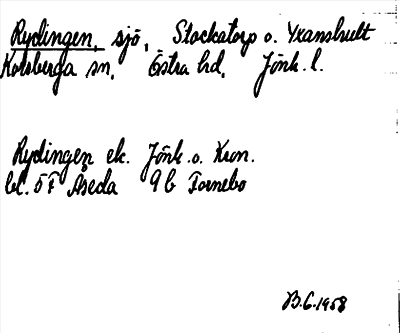 Rydingen, sjö, Stockatorp o. Yxanshult
Karlberga sn. Östra hd. Jönk. l.
Rydingen ek. Jönk. o. Kron.
bl. 5F Åseda 9b Tornebo
B.G. 1958